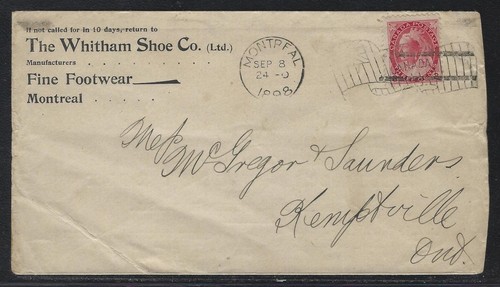 If not called for in 10 days, return to
The Whitham Shoe Co. (Ltd.)
Manufacturers . . . . . . . .
Fine Footwear
Montreal . . . . . .
MONTREAL
SEP 8
1898
CANADA POSTAGE
McGregor & Saunders
Kemptville
Ont.